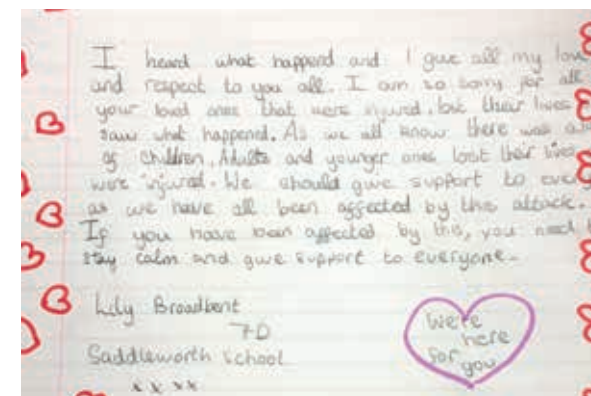 I heard what happend and I give all my love
and respect to you all. I am so sorry for all
your loved ones that were injured, lost their lives
saw what happened. As we all know there was a
of children, Adults and younger ones lost their lives
were injured. We should give support to
as we have all been affected by this attack.
If you have been affected by this, you need
stay calm and give support to everyone.
Lily Broadbent
7D
Saddleworth school
x x x x
We're
here
for
you